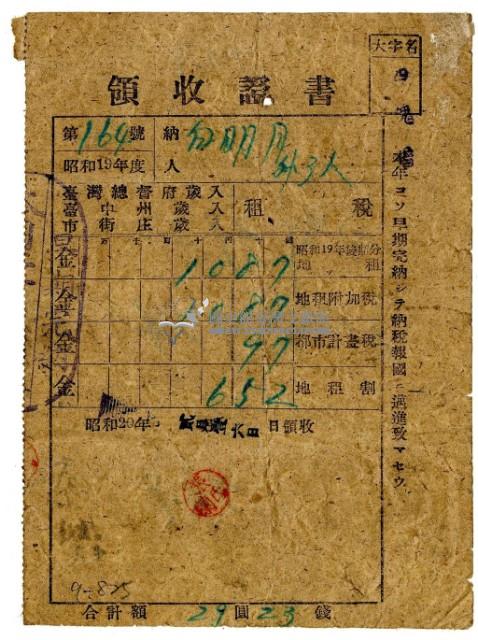 大字名
領收證書
第164號
昭和19年度
納人
外3人
臺灣總督府歲入
臺中州歲入
市街庄歲入
租稅
昭和19年後期分
地租
1087
地租附加稅
1087
都市計畫稅
97
地租割
652
昭和20年 日領收
本年コソ早期完納シテ納稅報國ニ邁進致マセウ
金
金
金
金
9-825
合計額 29圓23錢